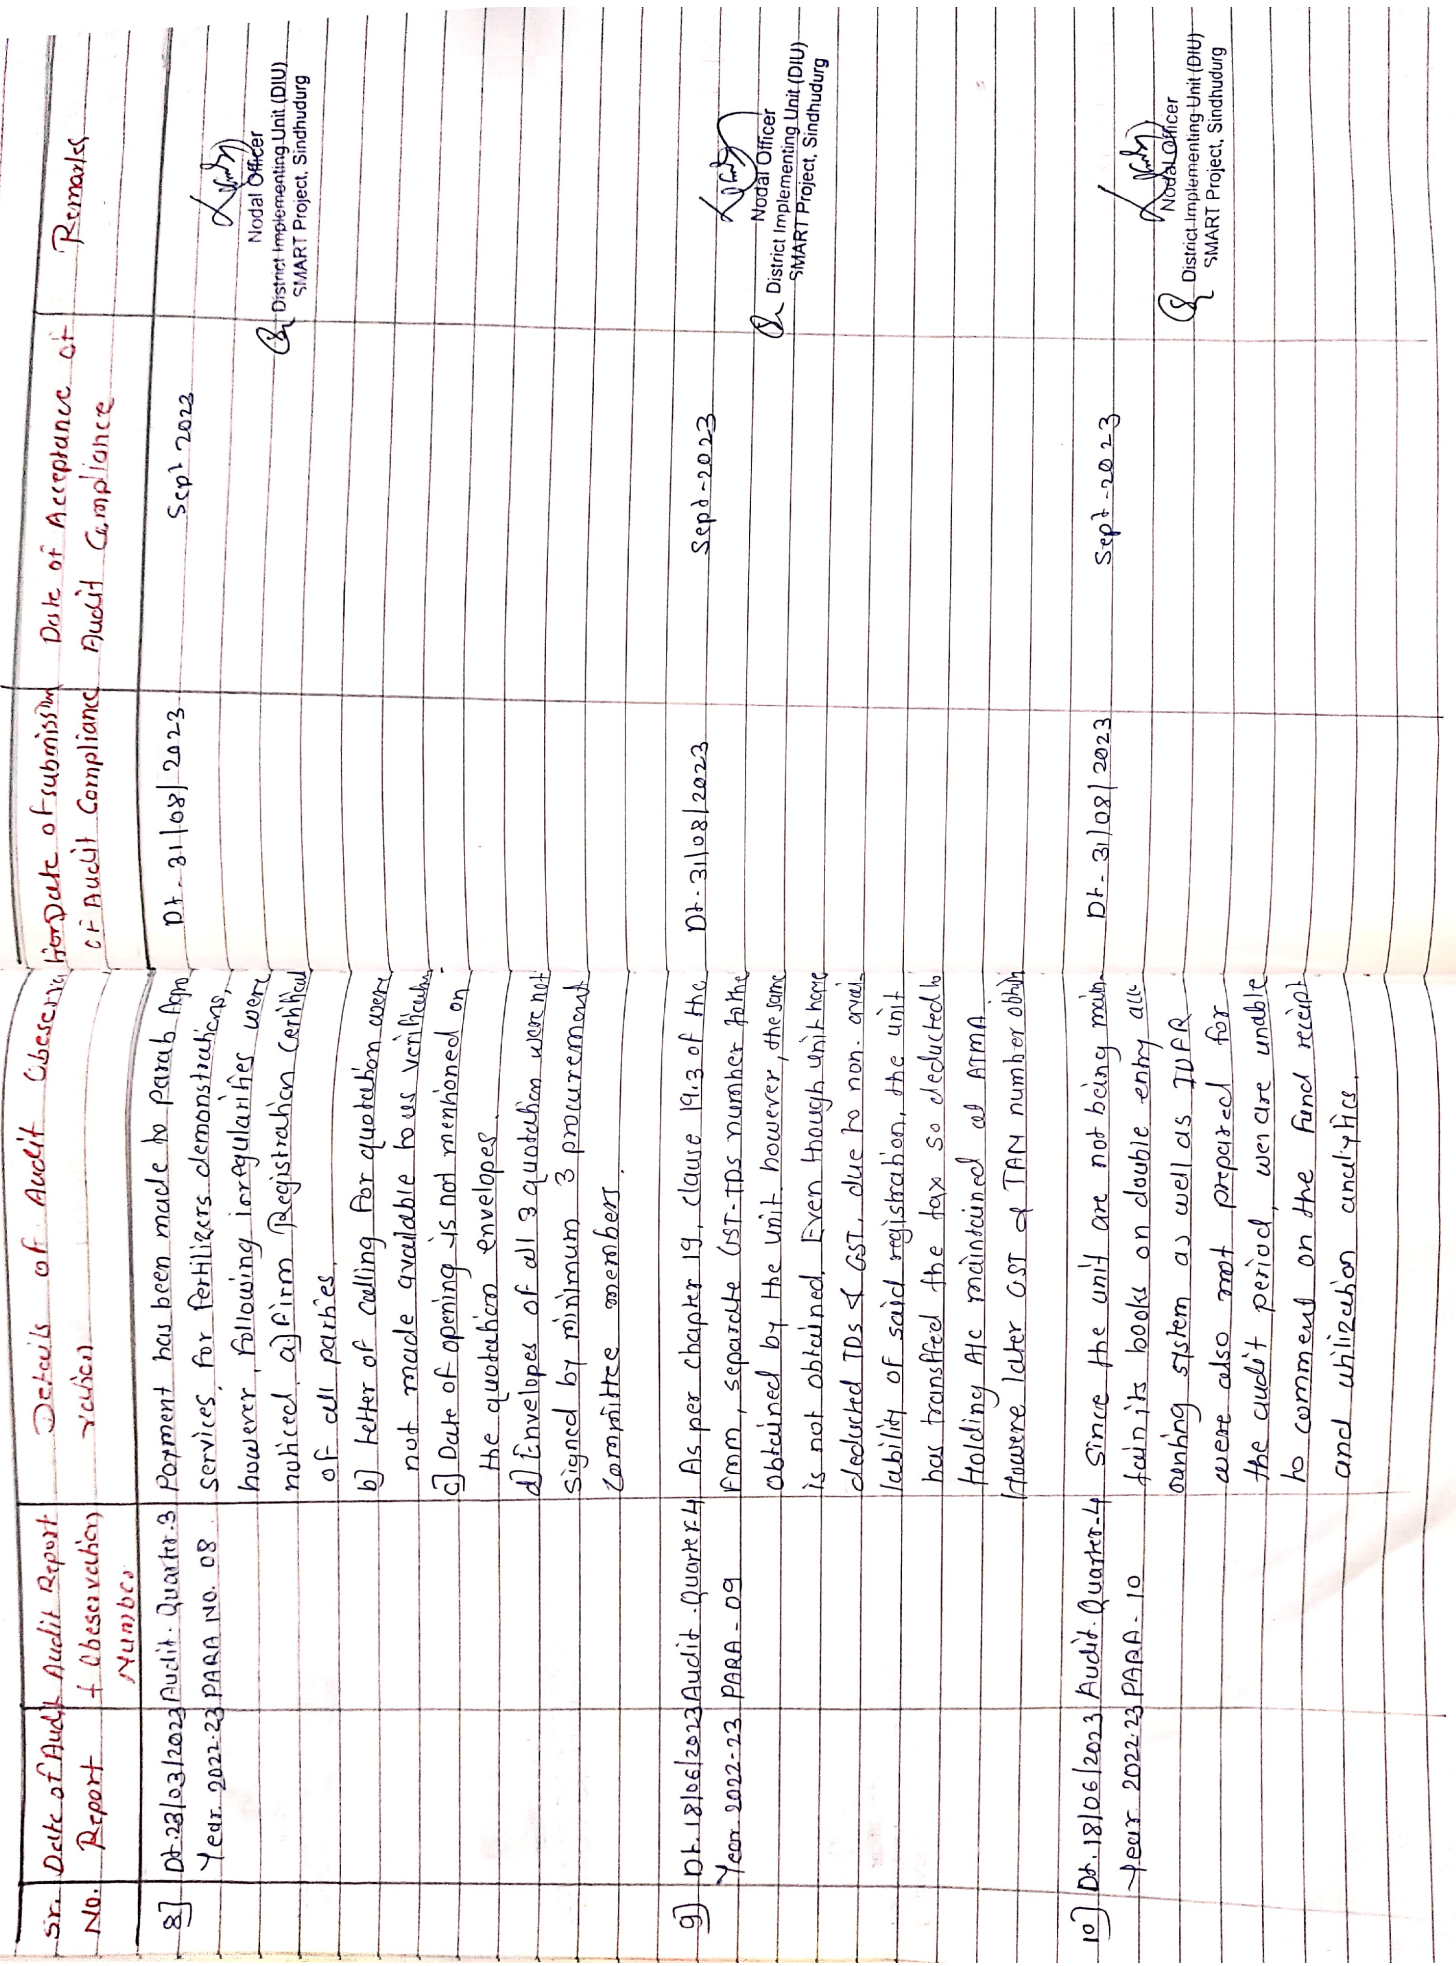 Sr. No.
Date of Audit Report
Audit Report & Obeservation Number
Details of Audit Obeserva
vation
Date of submission
of Audit Compliance
Date of Acceptance of
Audit Compliance
Remarks
8] Dt. 23/03/2023 Audit. Quarter.3
Year. 2022-23 PARA NO. 08.
Payment has been made to Parab Agro
services, for fertilizers demonstrations,
however, following irregularities were
noticed. a) Firm Registration Certificat
of all parties.
b] Letter of calling for quotation were
not made available to us verification
c] Date of opening is not mentioned on
the quotation envelopes.
d] Envelopes of all 3 quotation were not
signed by minimum 3 procurement
committee members.
Dt. 31/08/2023
Sept 2023
Nodal Officer
District Implementing Unit (DIU)
SMART Project, Sindhudurg
9] Dt. 18/06/2023 Audit. Quarter-4
Year. 2022-23 PARA - 09
As per chapter 19, clause 19.3 of the
FMM, separate GST-TDS number to the
obtained by the unit. however, the same
is not obtained. Even though unit have
deducted TDS & GST, due to non. avai
lability of said registration, the unit
has transffed the tax so deducted to
Holding A/c maintained at ATMA
Howere later GST & TAN number obtain
Dt. 31/08/2023
Sept-2023
Nodal Officer
District Implementing Unit (DIU)
SMART Project, Sindhudurg
10] Dt. 18/06/2023 Audit. Quarter-4
Year 2022-23 PARA - 10
Since the unit are not being main.
tain its books on double entry acc
ounting system as well as IUFR
were also not prepared for
the audit period, we are unable
to comment on the Fund receipt
and utilization analytics.
Dt. 31/08/2023
Sept-2023
Nodal Officer
District Implementing Unit (DIU)
SMART Project, Sindhudurg